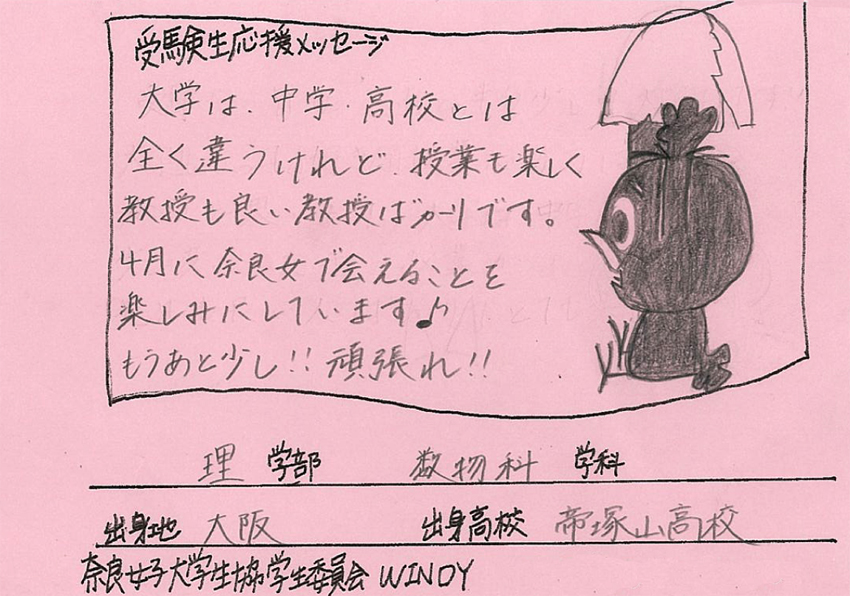 受験生応援メッセージ
大学は、中学・高校とは
全く違うけれど、授業も楽しく
教授も良い教授ばかりです。
4月に奈良女で会えることを
楽しみにしています♪
もうあと少し!!頑張れ!!
理 学部 数物科 学科
出身地 大阪 出身高校 帝塚山高校
奈良女子大学生協学生委員会 WINDY